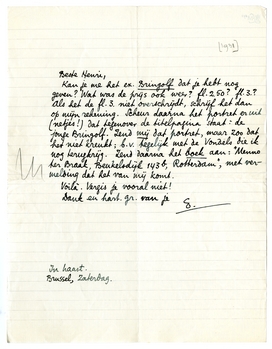 [1931]
Beste Henri,
Kan je me het ex. Bringolf dat je hebt nog
geven? Wat was de prijs ook weer? fl. 2.50? fl. 3.?
Als het de fl. 3. niet overschrijdt, schrijf het dan
op mijn rekening. Scheur daarna het portret er uit
(netjes!) dat tegenover de titelpagina staat: de
jonge Bringolf. Zend mij dat portret, maar zoo dat
het niet kreukt; b.v. tegelijk met de Vondels die ik
nog terugkrijg. Zend daarna het boek aan: "Menno
ter Braak, Beukelsdijk 143b, Rotterdam", met ver-
melding dat het van mij komt.
Voilà. Vergis je vooral niet!
Dank en hart. gr. van je
E.
In haast.
Brussel, Zaterdag.